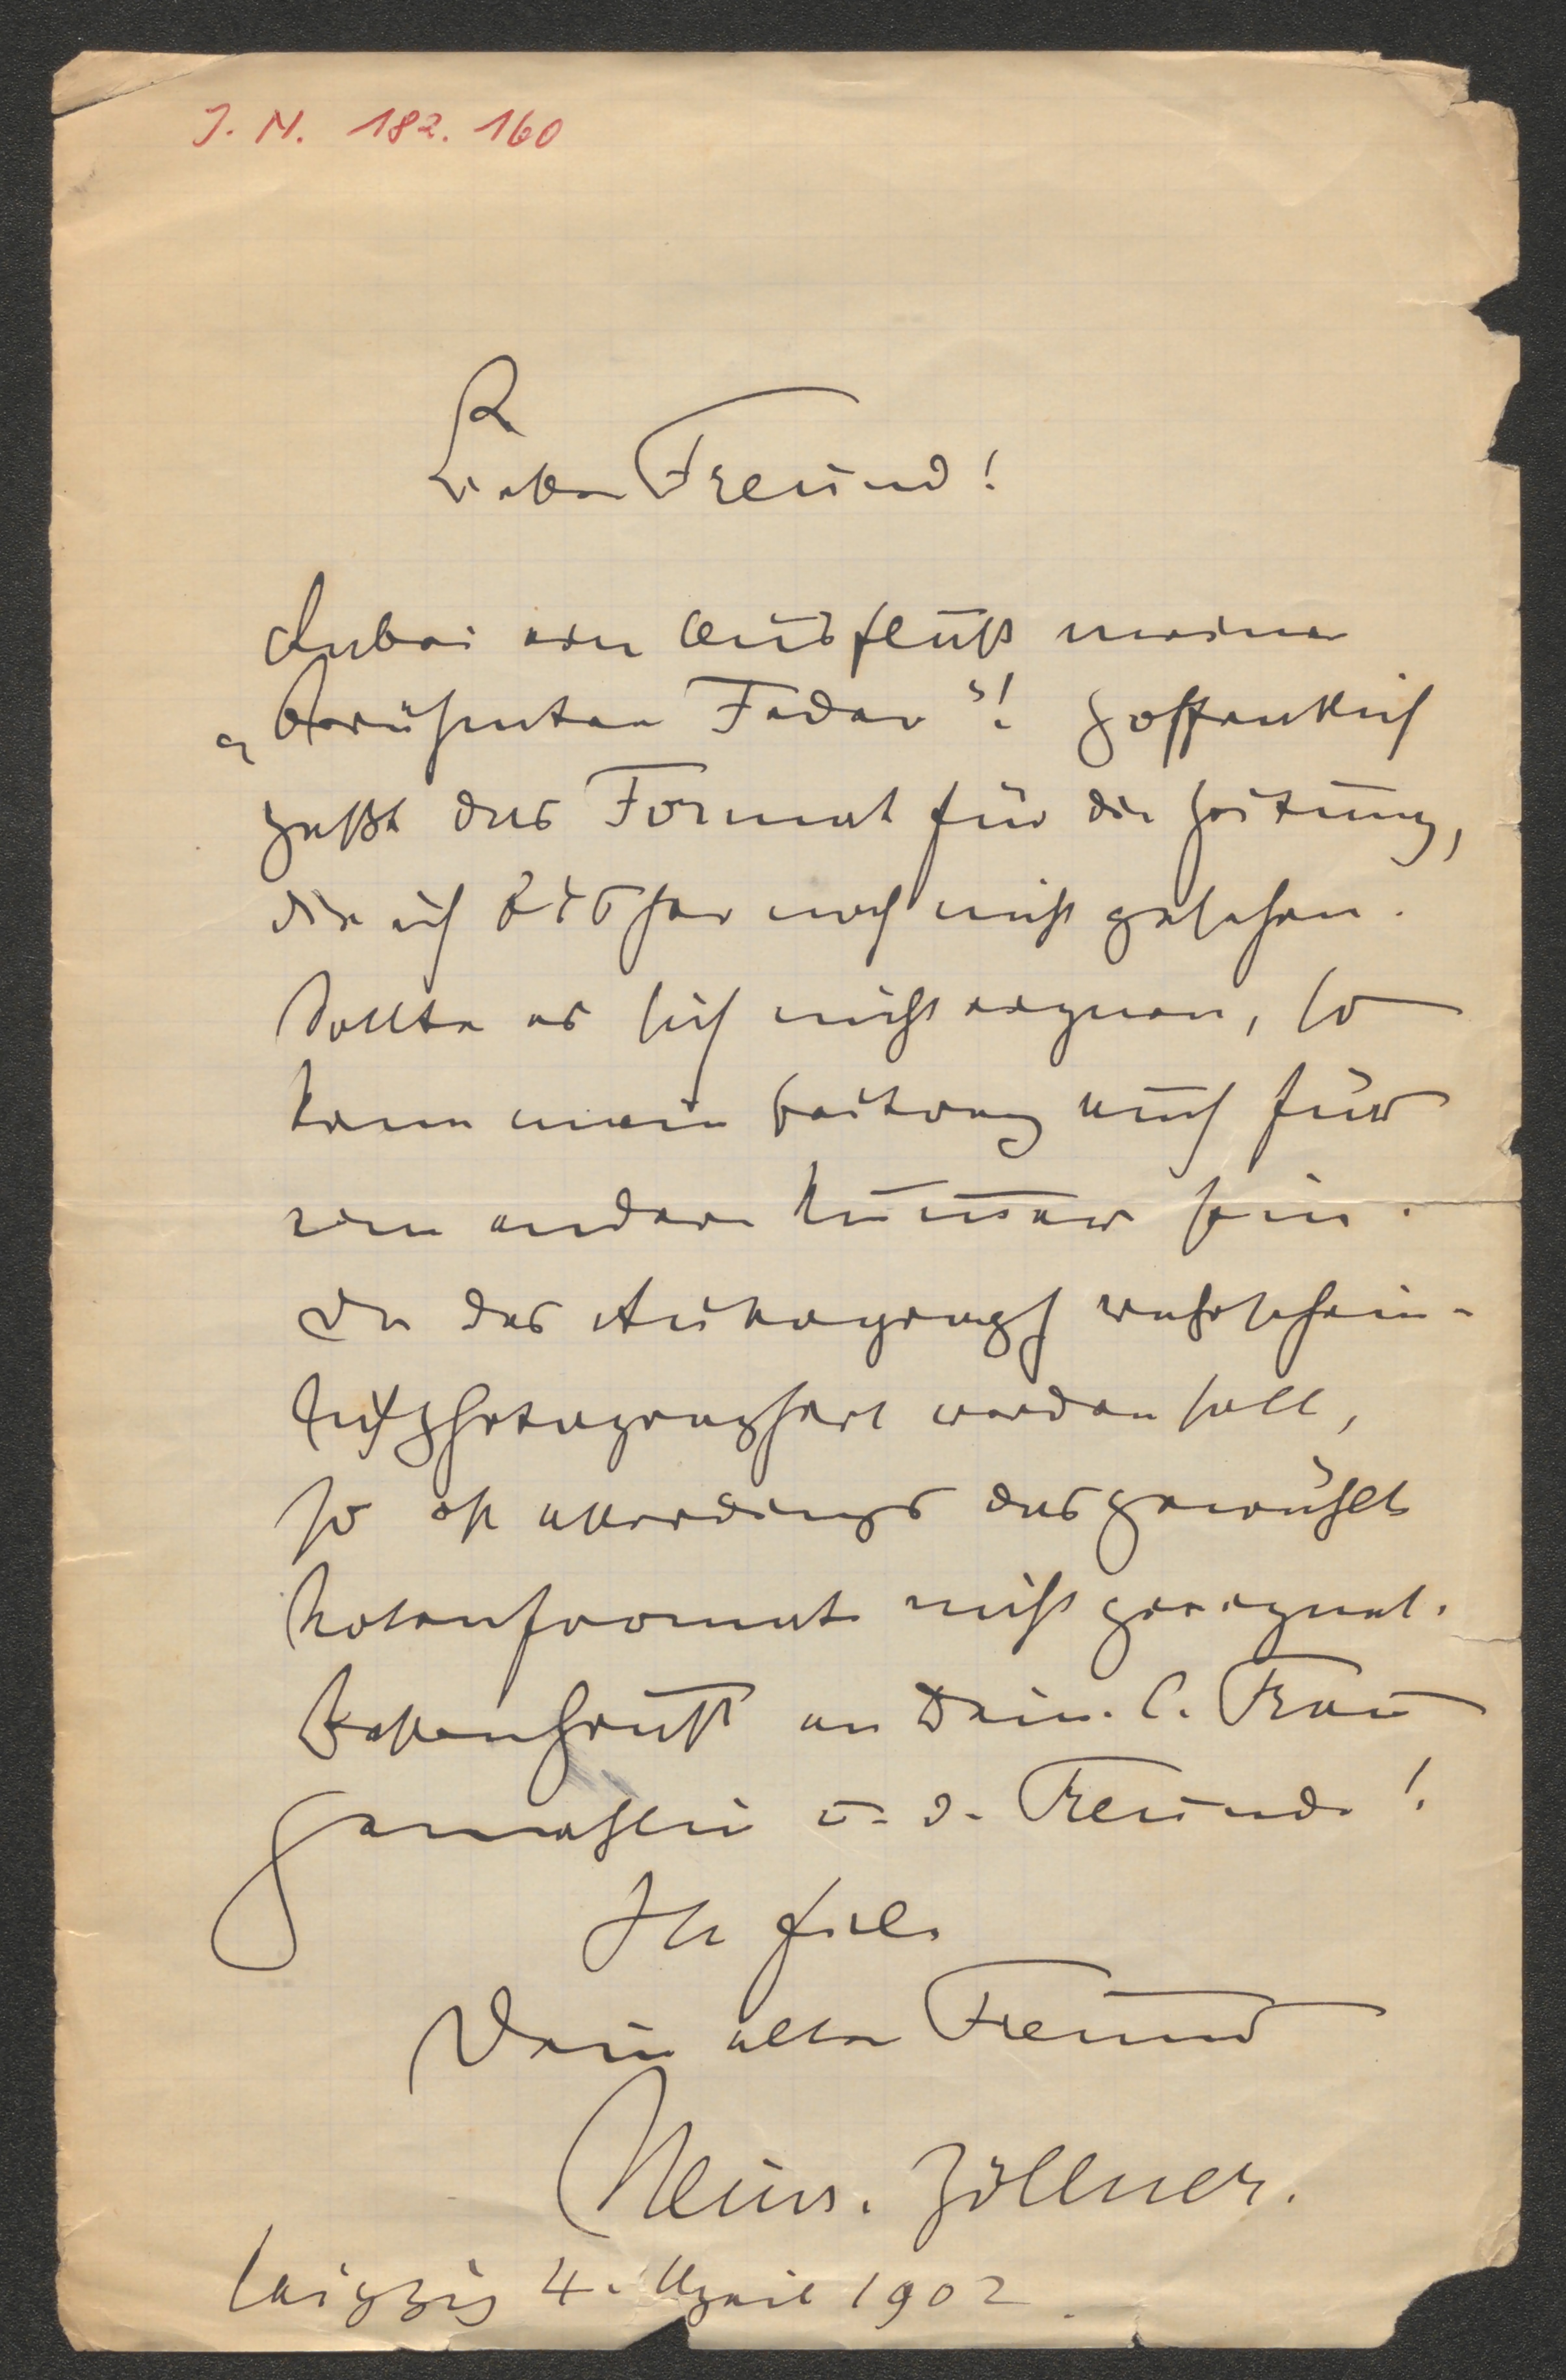 J. N. 182.160
Lieber Freund!
Anbei ein Ausfluß meiner
„berühmten Feder“! Hoffentlich
paßt das Format für die Zeitung,
die ich bisher noch nicht gesehen.
Sollte es sich nicht eignen, so
kann mein Beitrag auch für
eine andere Nummer sein.
Da das Autograph wahrschein-
lich photographiert werden soll,
so ist allerdings das gewählte
Notenformat nicht geeignet.
Besten Gruß an Deine l. Frau
Gemahlin u. d. Freunde!
Dein alter Freund
Heinr. Zöllner.
Leipzig 4. April 1902.